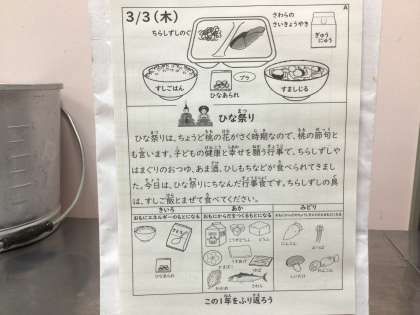 3/3(木)
A
ちらしずしのぐ
さわらの
さいきょうやき
ぎゅう
にゅう
すしごはん
プラ
ひなあられ
すましじる
ひな祭り
ひな祭りは、ちょうど桃の花がさく時期なので、桃の節句と
も言います。子どもの健康と幸せを願う行事で、ちらしずしや
はまぐりのおつゆ、あま酒、ひしもちなどが食べられてきまし
た。今日は、ひな祭りにちなんだ行事食です。ちらしずしの具
は、すしご飯とまぜて食べてください。
きいろ
あか
みどり
おもにエネルギーのもとになる
おもにからだをつくるもとになる
ひなあられ
とうふ
かまぼこ
わかめ
さわら
にんじん
しいたけ
この1年をふり返ろう